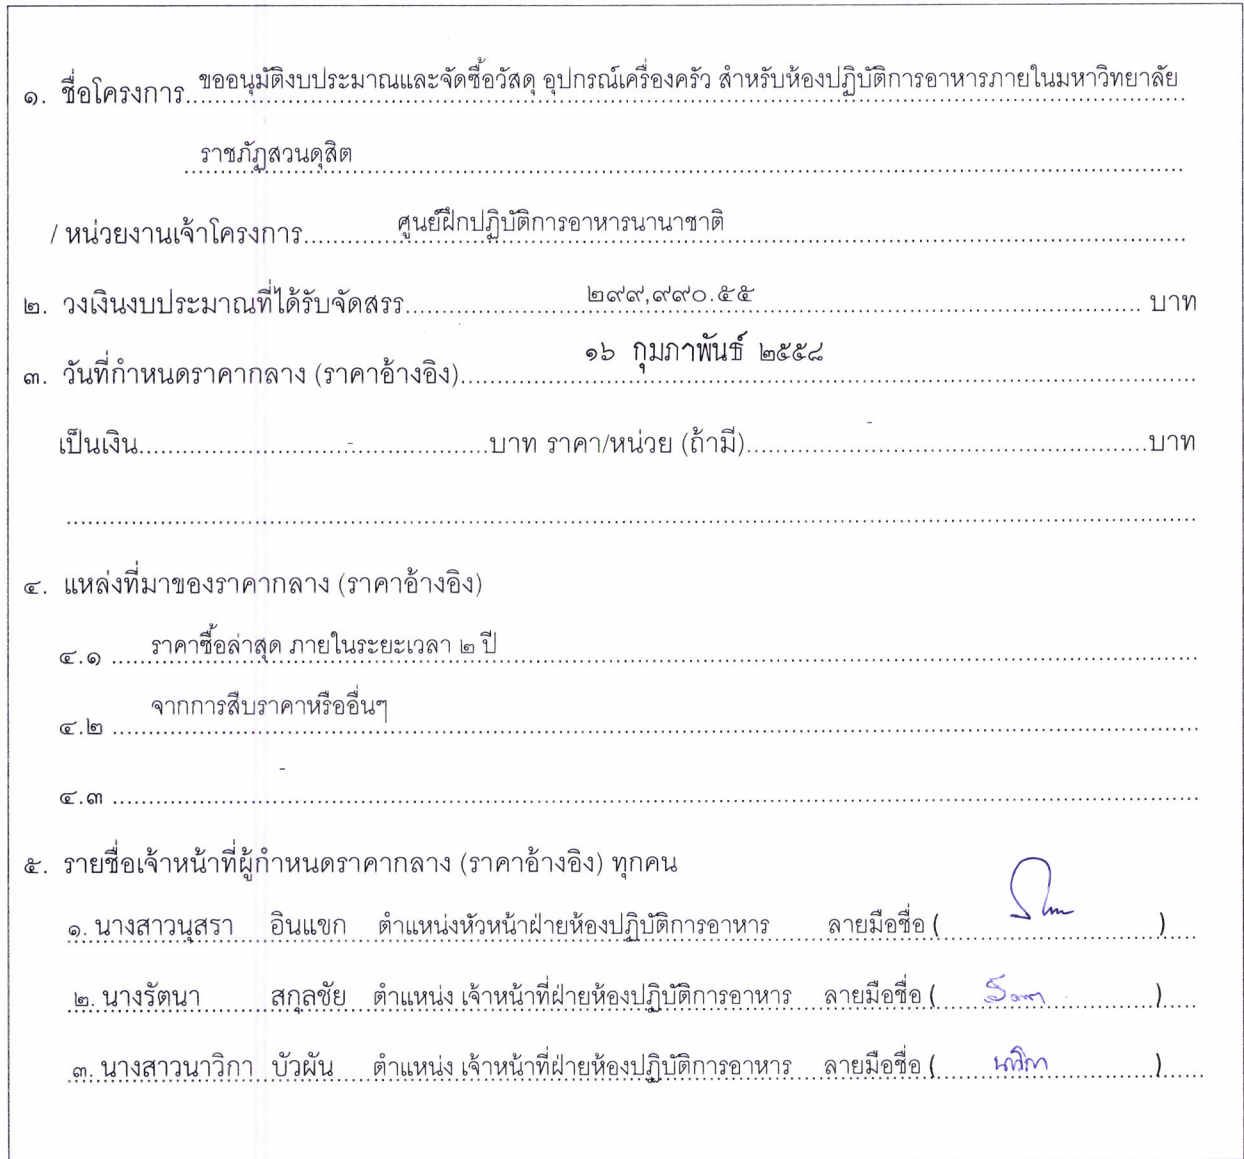 ๑. ชื่อโครงการ ขออนุมัติงบประมาณและจัดซื้อวัสดุ อุปกรณ์เครื่องครัว สำหรับห้องปฏิบัติการอาหารภายในมหาวิทยาลัย
ราชภัฏสวนดุสิต
/ หน่วยงานเจ้าโครงการ ศูนย์ฝึกปฏิบัติการอาหารนานาชาติ
๒. วงเงินงบประมาณที่ได้รับจัดสรร ๒๙๙,๙๙๐.๕๕ บาท
๓. วันที่กำหนดราคากลาง (ราคาอ้างอิง) ๑๖ กุมภาพันธ์ ๒๕๕๘
เป็นเงิน - บาท ราคา/หน่วย (ถ้ามี) - บาท
๔. แหล่งที่มาของราคากลาง (ราคาอ้างอิง)
๔.๑ ราคาซื้อล่าสุด ภายในระยะเวลา ๒ ปี
๔.๒ จากการสืบราคาหรืออื่นๆ
๔.๓ -
๕. รายชื่อเจ้าหน้าที่ผู้กำหนดราคากลาง (ราคาอ้างอิง) ทุกคน
๑. นางสาวนุสรา อินแขก ตำแหน่งหัวหน้าฝ่ายห้องปฏิบัติการอาหาร ลายมือชื่อ ( )
๒. นางรัตนา สกุลชัย ตำแหน่ง เจ้าหน้าที่ฝ่ายห้องปฏิบัติการอาหาร ลายมือชื่อ ( )
๓. นางสาวนาวิกา บัวผัน ตำแหน่ง เจ้าหน้าที่ฝ่ายห้องปฏิบัติการอาหาร ลายมือชื่อ ( นาวิกา )